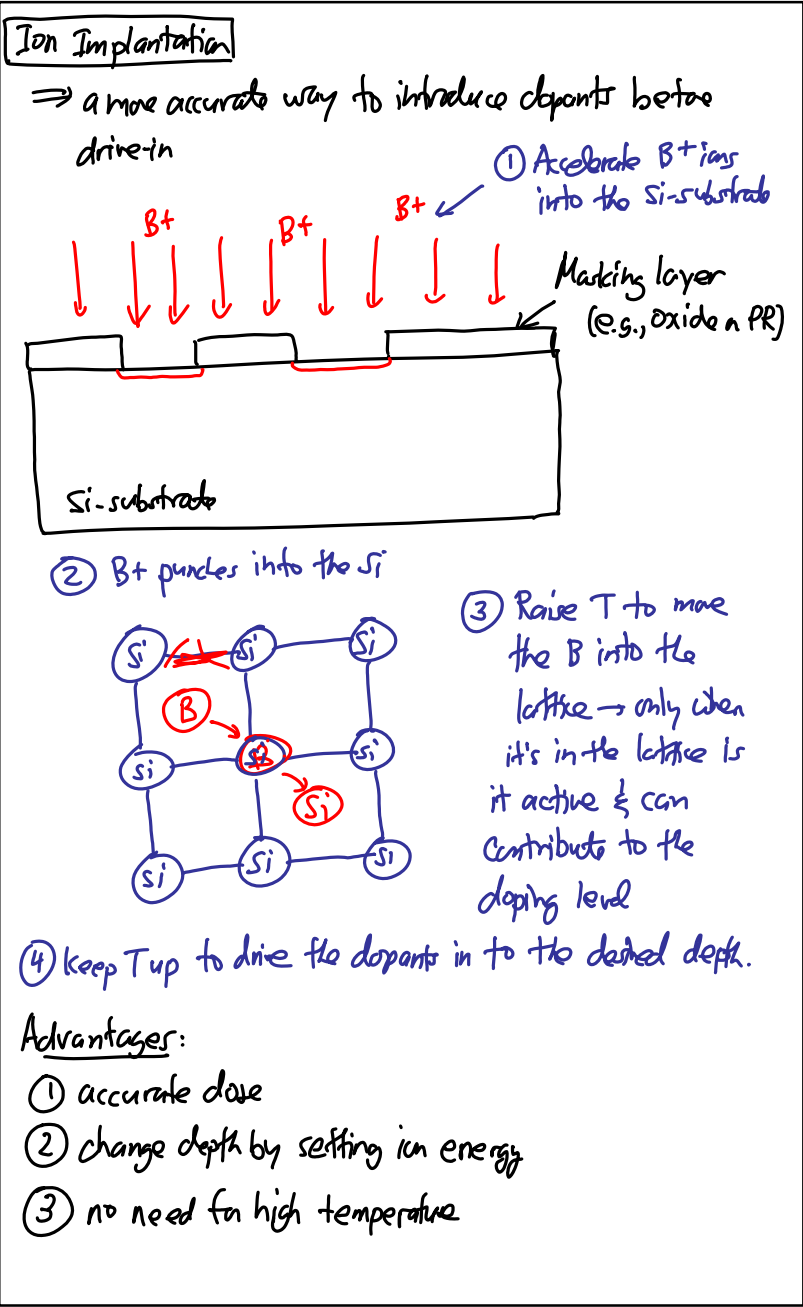 Ion Implantation
⇒ a more accurate way to introduce dopants before
drive-in
① Accelerate B+ ions
into the Si-substrate
B+ B+ B+
Masking layer
(e.g., oxide or PR)
Si-substrate
② B+ punches into the Si
Si Si Si
B
Si Si B Si
Si
Si Si Si
③ Raise T to move
the B into the
lattice → only when
it's in the lattice is
it active & can
contribute to the
doping level
④ keep T up to drive the dopants in to the desired depth.
Advantages:
① accurate dose
② change depth by setting ion energy
③ no need for high temperature